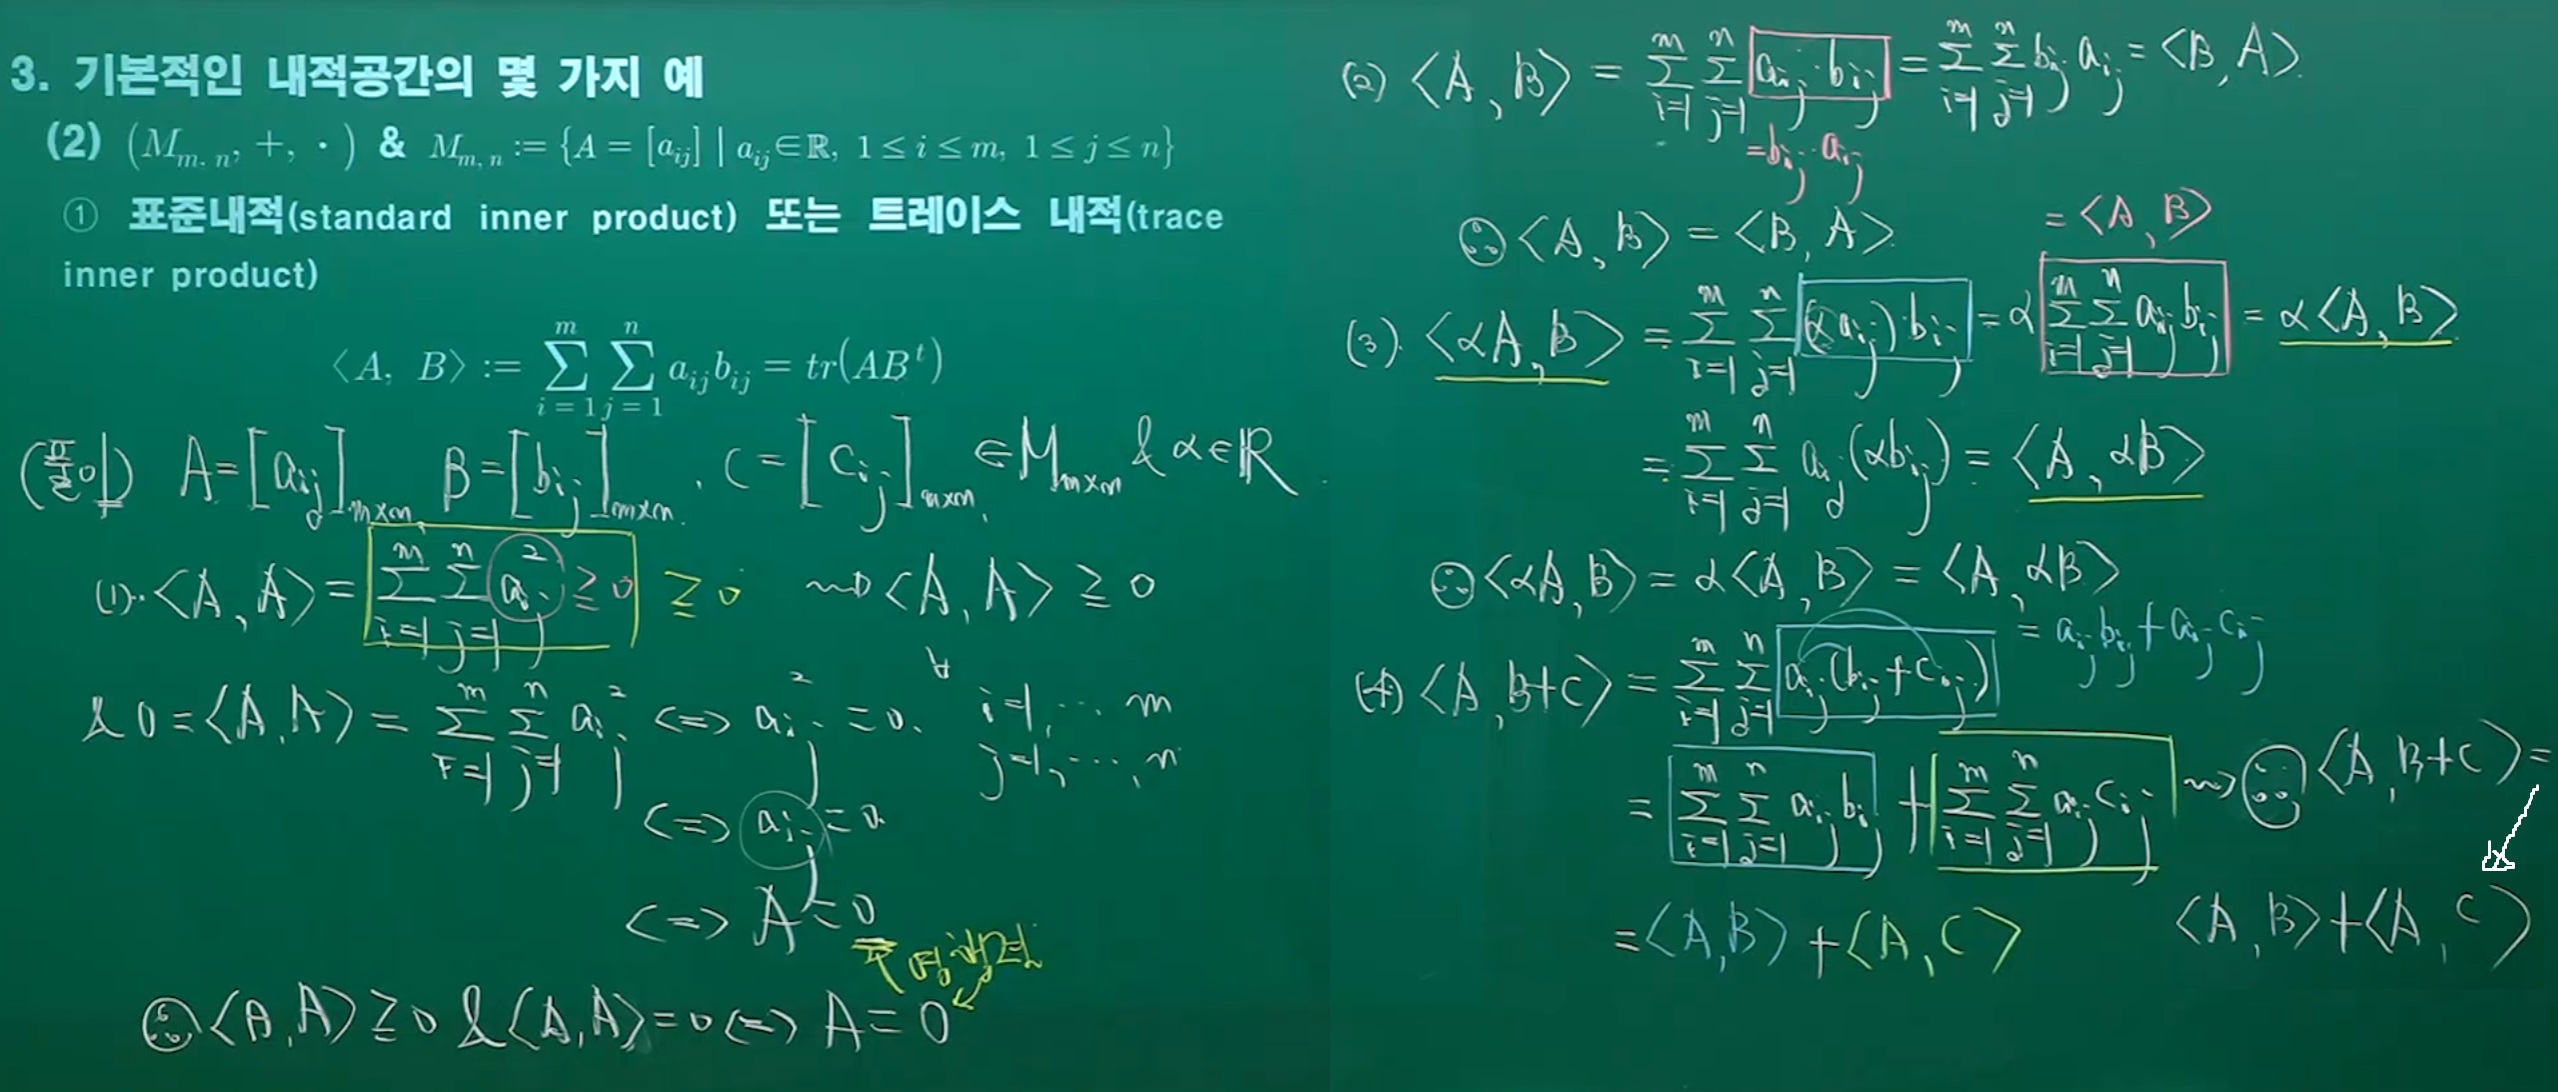 3. 기본적인 내적공간의 몇 가지 예
(2) (M_{m, n}, +, ·) & M_{m, n} := {A = [a_{ij}] | a_{ij} ∈ ℝ, 1 ≤ i ≤ m, 1 ≤ j ≤ n}
① 표준내적(standard inner product) 또는 트레이스 내적(trace
inner product)
⟨A, B⟩ := ∑_{i=1}^{m} ∑_{j=1}^{n} a_{ij}b_{ij} = tr(AB^t)
(풀이) A = [a_{ij}]_{m×n}, B = [b_{ij}]_{m×n}, C = [c_{ij}]_{m×n} ∈ M_{m×n} & α ∈ ℝ
(1) ⟨A, A⟩ = ∑_{i=1}^{m} ∑_{j=1}^{n} a_{ij}^2 ≥ 0 ≥ 0 ⇝ ⟨A, A⟩ ≥ 0
& 0 = ⟨A, A⟩ = ∑_{i=1}^{m} ∑_{j=1}^{n} a_{ij}^2 <=> a_{ij}^2 = 0. ∀ i=1, ⋯ m
j=1, ⋯, n
<=> a_{ij} = 0.
<=> A = 0
영행렬
∴ ⟨A, A⟩ ≥ 0 & ⟨A, A⟩ = 0 <=> A = 0
(2) ⟨A, B⟩ = ∑_{i=1}^{m} ∑_{j=1}^{n} a_{ij}·b_{ij} = ∑_{i=1}^{m} ∑_{j=1}^{n} b_{ij} a_{ij} = ⟨B, A⟩.
= b_{ij}·a_{ij}
∴ ⟨A, B⟩ = ⟨B, A⟩.
= ⟨A, B⟩
(3). ⟨αA, B⟩ = ∑_{i=1}^{m} ∑_{j=1}^{n} (αa_{ij})·b_{ij} = α ∑_{i=1}^{m} ∑_{j=1}^{n} a_{ij} b_{ij} = α⟨A, B⟩
= ∑_{i=1}^{m} ∑_{j=1}^{n} a_{ij}(αb_{ij}) = ⟨A, αB⟩
∴ ⟨αA, B⟩ = α⟨A, B⟩ = ⟨A, αB⟩
= a_{ij}b_{ij} + a_{ij}c_{ij}
(4) ⟨A, B+C⟩ = ∑_{i=1}^{m} ∑_{j=1}^{n} a_{ij}(b_{ij} + c_{ij})
= ∑_{i=1}^{m} ∑_{j=1}^{n} a_{ij} b_{ij} + ∑_{i=1}^{m} ∑_{j=1}^{n} a_{ij} c_{ij} ⇝ ∴ ⟨A, B+C⟩ =
= ⟨A, B⟩ + ⟨A, C⟩
⟨A, B⟩ + ⟨A, C⟩